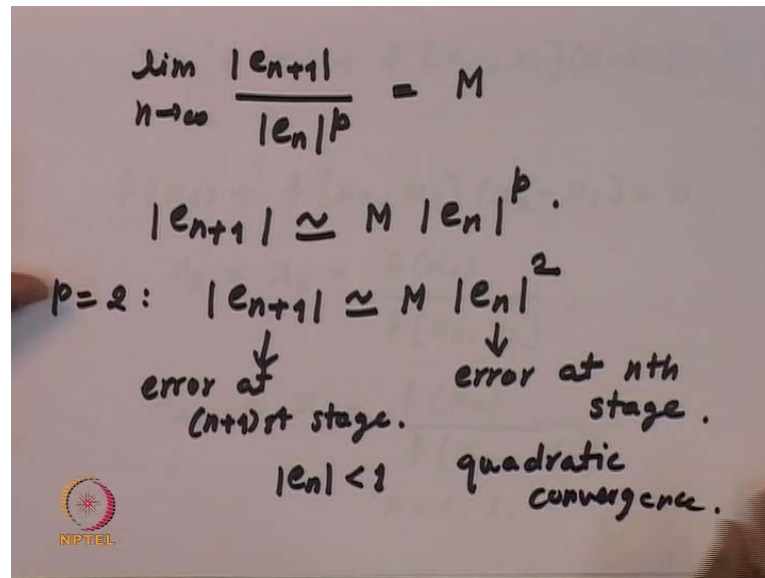 lim |en+1| / |en|^p = M
n→∞
|en+1| ≃ M |en|^p.
p=2: |en+1| ≃ M |en|^2
↓ ↓
error at (n+1)st stage. error at nth stage.
|en| < 1 quadratic convergence.
NPTEL